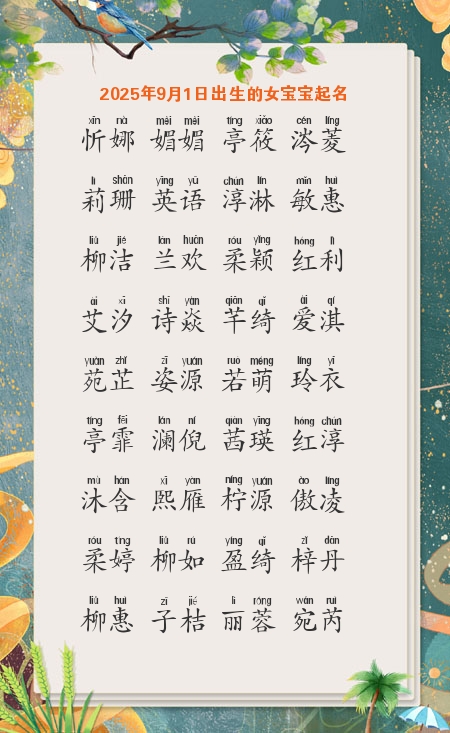 2025年9月1日出生的女宝宝起名
xīn nà měi měi tíng xiǎo cén líng
忻娜 媚媚 亭筱 涔菱
lì shān yīng yǔ chún lín mǐn huì
莉珊 英语 淳淋 敏惠
liǔ jié lán huān róu yǐng hóng lì
柳洁 兰欢 柔颖 红利
ài xī shī yàn qiān qǐ ài qí
艾汐 诗焱 芊绮 爱淇
yuàn zhǐ zī yuán ruò méng líng yī
苑芷 姿源 若萌 玲衣
tíng fēi lán ní qiàn yīng hóng chún
亭霏 澜倪 茜瑛 红淳
mù hán xī yàn níng yuán ào líng
沐含 熙雁 柠源 傲凌
róu tíng liǔ rú yíng qǐ zǐ dān
柔婷 柳如 盈绮 梓丹
liǔ huì zǐ jié lì róng wǎn ruì
柳惠 子桔 丽蓉 宛芮